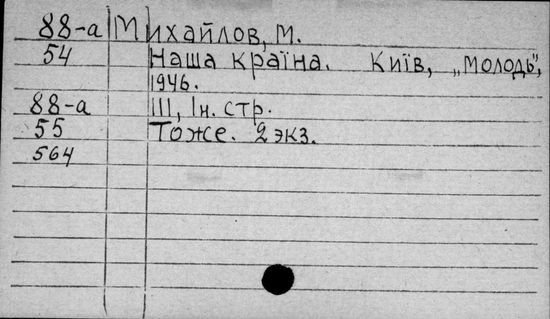 88-а Михайлов, М.
54 Наша країна. Київ, „Молодь",
1946.
88-а III, Ін. стр.
55 Тоже. 2 экз.
564